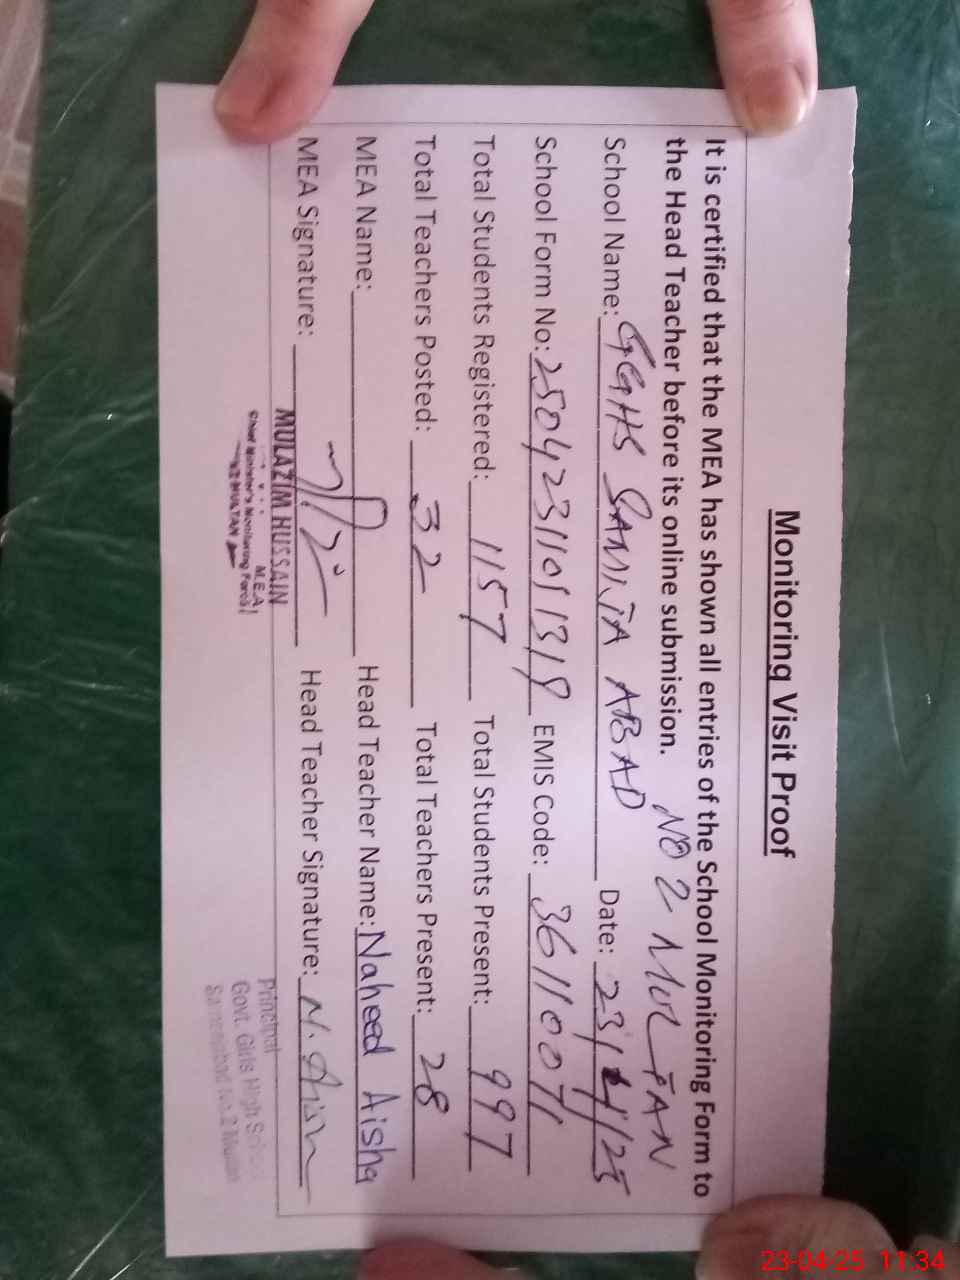 Monitoring Visit Proof
It is certified that the MEA has shown all entries of the School Monitoring Form to
the Head Teacher before its online submission.
NO 2 MULTAN
School Name: GGHS SAMIJA ABAD Date: 23/4/25
School Form No: 25042311051318 EMIS Code: 36110071
Total Students Registered: 1157 Total Students Present: 997
Total Teachers Posted: 32 Total Teachers Present: 28
MEA Name: Head Teacher Name: Naheed Aisha
MEA Signature: Head Teacher Signature: N. Aish
MULAZIM HUSSAIN
M.E.A
Chief Minister's Monitoring Force
MULTAN
Principal
Govt. Girls High School
Sameejabad No.2 Multan
23-04-25 11:34